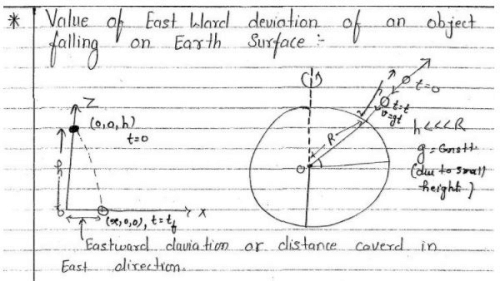 * Value of East Ward deviation of an object
falling on Earth Surface :-
Z
(0,0,h)
t=0
h
0
X
(x,0,0), t=tf
t=0
h
t=t
v=gt
R
O
h<<<R
g = Constt.
(due to small
height)
Eastward daviation or distance coverd in
East direction.